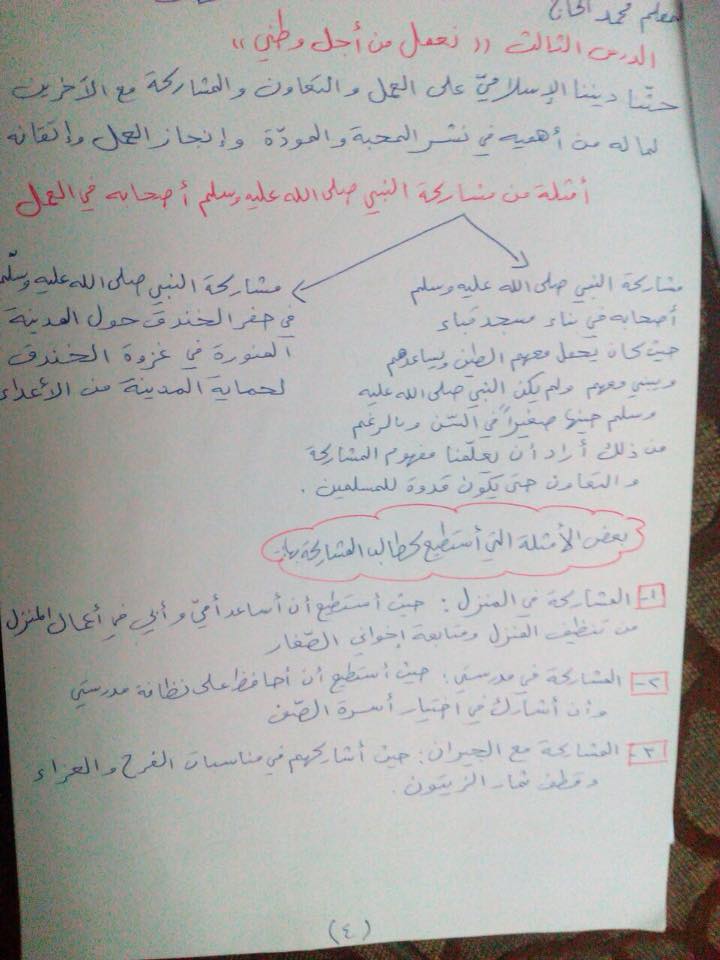 معلم محمد الحاج
الدرس الثالث (( نعمل من أجل وطني ))
حثّنا ديننا الإسلاميّ على العمل والتعاون والمشاركة مع الآخرين
لما له من أهميه في نشر المحبة والمودّة وإنجاز العمل وإتقانه
أمثلة من مشاركة النبي صلى الله عليه وسلم أصحابه في العمل
مشاركة النبي صلى الله عليه وسلم
أصحابه في بناء مسجد قباء
حيث كان يحمل معهم الطين ويساعدهم
ويبني معهم ولم يكن النبي صلى الله عليه
وسلم حينها صغيراً في السّن وبالرغم
من ذلك أراد أن يعلّمنا مفهوم المشاركة
والتعاون حتى يكون قدوة للمسلمين .
مشاركة النبي صلى الله عليه وسلّم
في حفر الخندق حول المدينة
المنورة في غزوة الخندق
لحماية المدينة من الأعداء
بعض الأمثلة التي أستطيع كطالب المشاركة بها:
١- المشاركة في المنزل : حيث أستطيع أن أساعد أميّ وأبي في أعمال المنزل
من تنظيف المنزل ومتابعة إخواني الصّغار
٢- المشاركة في مدرستي : حيث أستطيع أن أحافظ على نظافة مدرستي
وأن أشارك في اختيار أسرة الصّف
٣- المشاركة مع الجيران : حيث أشاركهم في مناسبات الفرح والعزاء
وقطف ثمار الزيتون .
(٤)